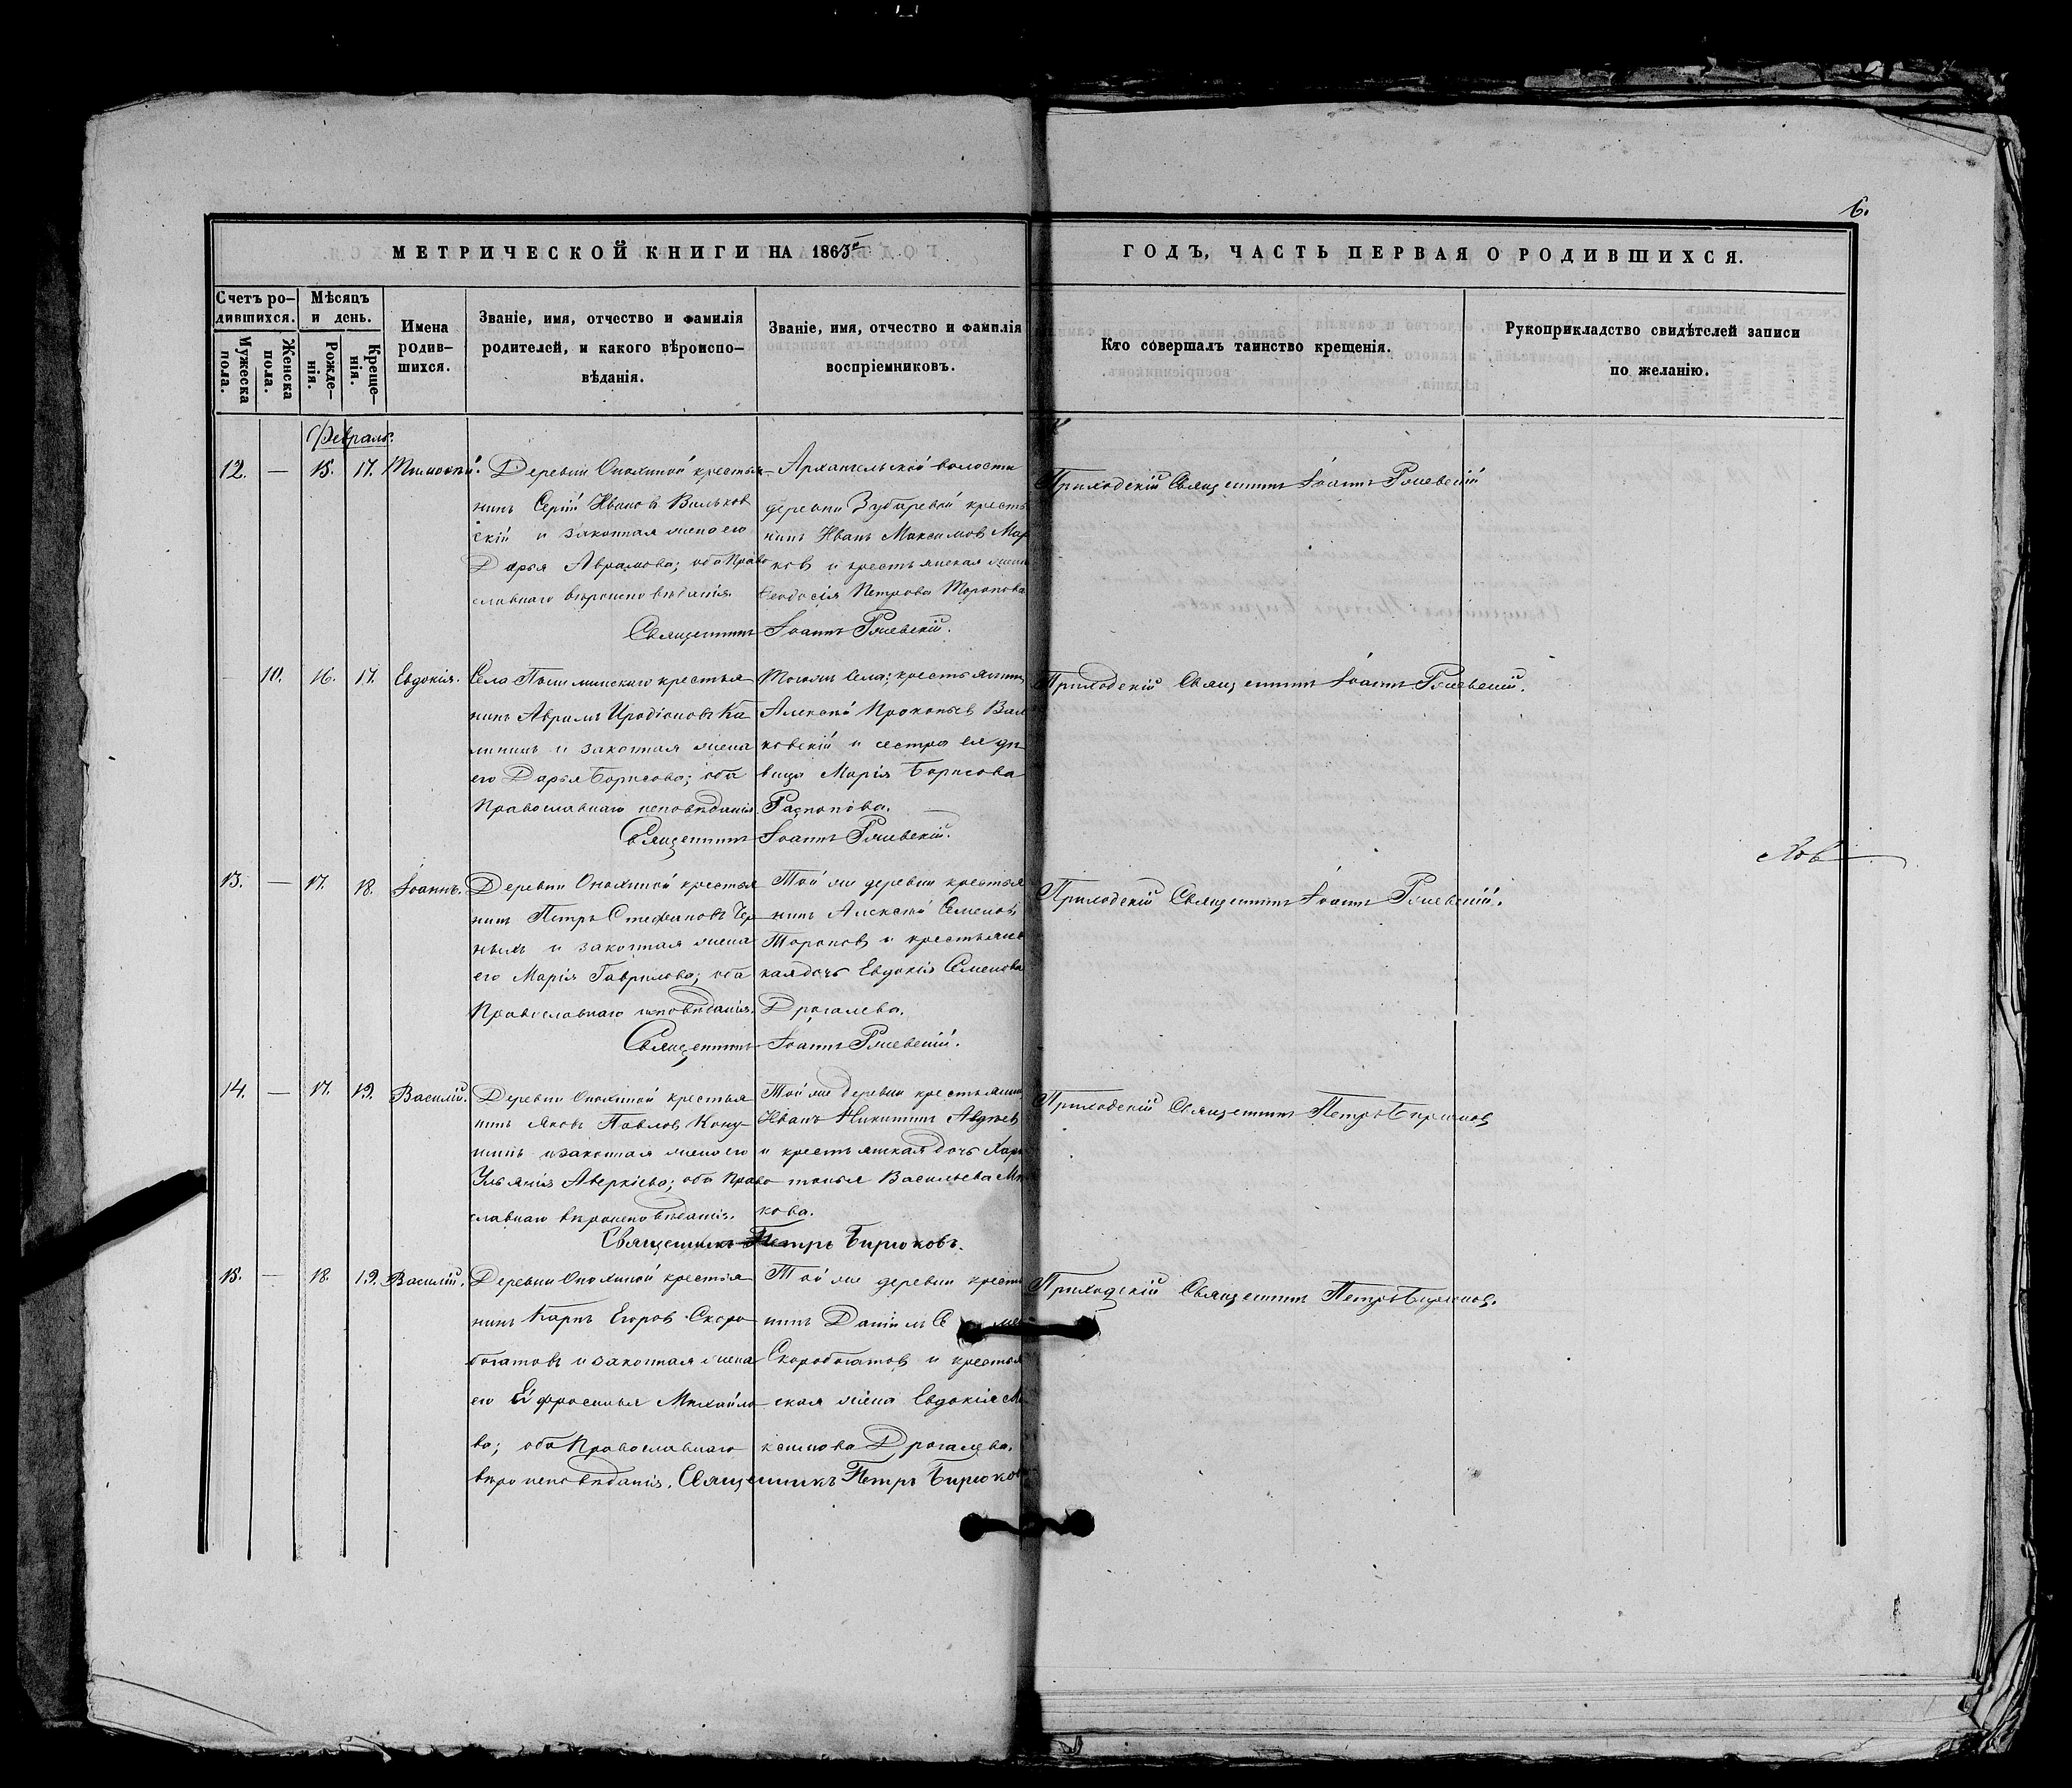 6.
МЕТРИЧЕСКОЙ КНИГИ НА 1863й
ГОДЪ, ЧАСТЬ ПЕРВАЯ О РОДИВШИХСЯ.
Счетъ ро-
дившихся.
Мужеска
пола.
Женска
пола.
Мѣсяцъ
и день.
Рожде-
нія.
Креще-
нія.
Имена
родив-
шихся.
Званіе, имя, отчество и фамилія
родителей, и какого вѣроиспо-
вѣданія.
Званіе, имя, отчество и фамилія
воспріемниковъ.
Кто совершалъ таинство крещенія.
Рукоприкладство свидѣтелей записи
по желанію.
Февраль.
12. — 15. 17. Тимоѳей.
Деревни Онохиной крестья
нинъ Сергій Ивановъ Вильков
скій и законная жена его
Дарья Аврамова; оба Право
славнаго вѣроисповѣданія.
Архангельской волости
деревни Зубаревой кресть
нинъ Иванъ Максимовъ Мар
ковъ и крестьянская жена
Ѳеодосія Петрова Торопова
Священникъ Іоаннъ
Приходскій Священникъ Іоаннъ
10. 16. 17. Евдокія.
Села крестья
нинъ Аврамъ Иродіоновъ Ка
лининъ и законная жена
его Дарья Борисова; оба
Православнаго исповѣданія.
Тогоже Села; крестьянинъ
Алексѣй Прокопьев Вил
ковскій и сестра ея дѣ
вица Марія Борисова
Распопова.
Священникъ Іоаннъ
Приходскій Священникъ Іоаннъ
13. — 17. 18. Іоаннъ.
Деревни Онохиной крестья
нинъ Петръ Стефановъ Чер
ныхъ и законная жена
его Марія Гаврилова; оба
Православнаго исповѣданія.
Той же деревни крестья
нинъ Алексѣй Семеновъ
Тороповъ и крестьянс
кая дочь Евдокія Семенова
Дрогалева.
Священникъ Іоаннъ
Приходскій Священникъ Іоаннъ
14. — 17. 19. Василій.
Деревни Онохиной крестья
нинъ Яковъ Павловъ
и законная жена его
Ульянія Аверкіева; оба Право
славнаго вѣроисповѣданія.
Той же деревни крестьянинъ
Иванъ Никитинъ Авдѣевъ
и крестьянская дочь Хари
тонья Васильева
кова.
Священникъ Петръ Бирюковъ.
Приходскій Священникъ Петръ Бирюковъ
15. — 18. 19. Василій.
Деревни Онохиной крестья
нинъ Карпъ Егоровъ Скоро
богатовъ и законная жена
его Ефросинья Михайло
ва; оба Православнаго
вѣроисповѣданія.
Той же деревни кресть
нинъ Даніилъ
Скоробогатовъ и крестья
ская жена Евдокія Ма
ксимова Дрогалева.
Священникъ Петръ Бирюковъ
Приходскій Священникъ Петръ Бирюковъ.